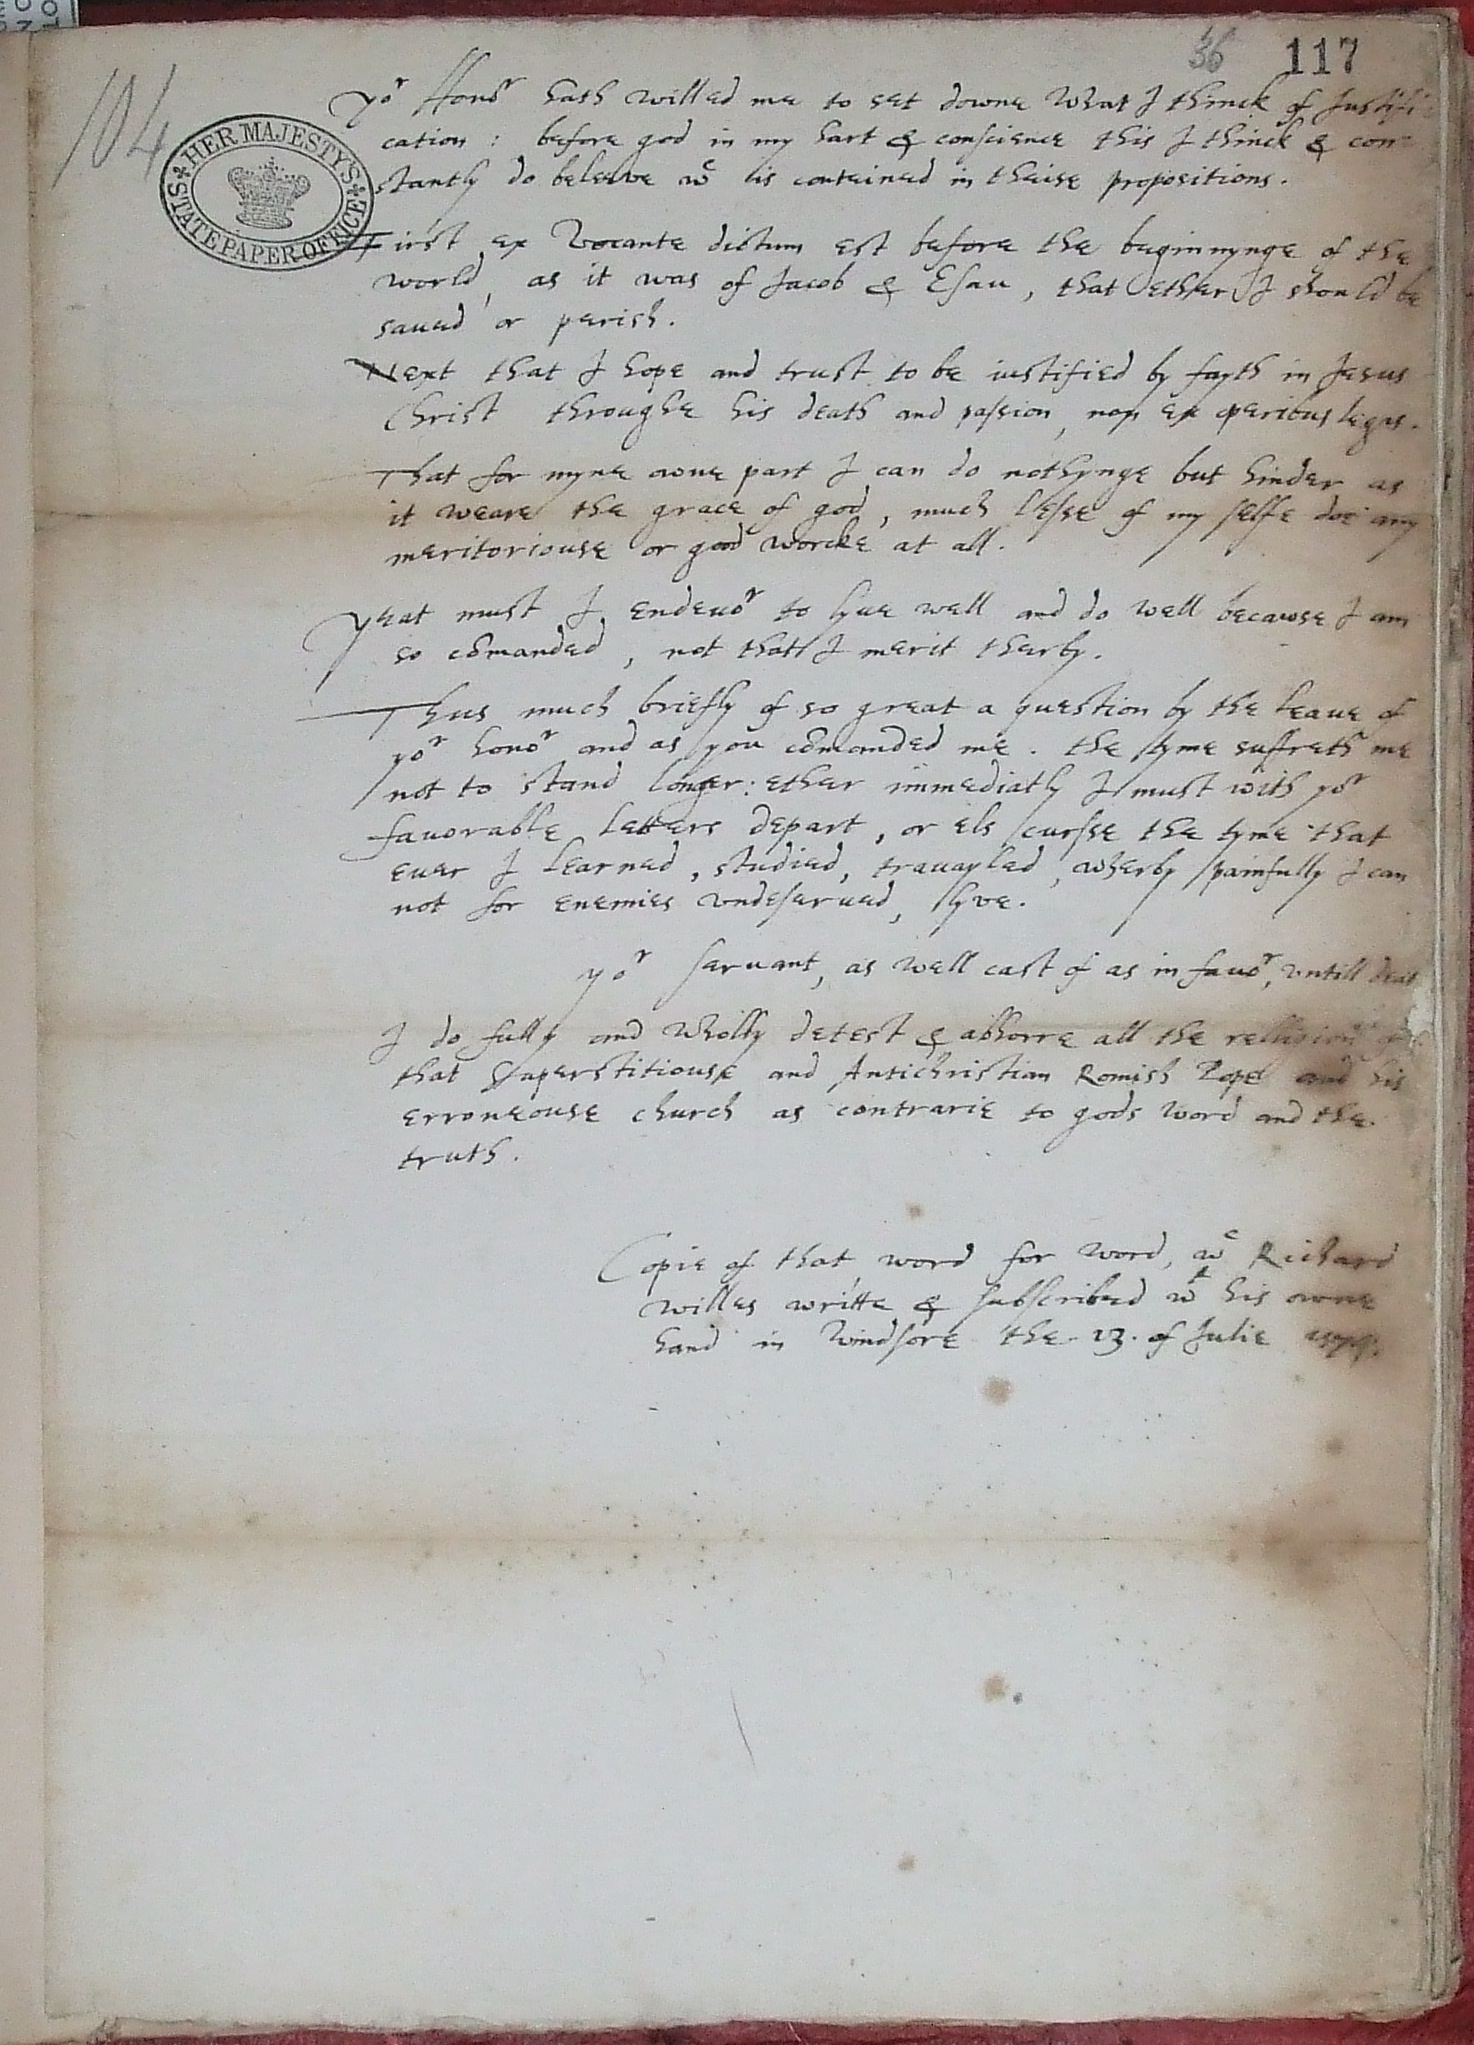 36 117
104
HER MAJESTY'S STATE PAPER OFFICE
yor Honor hath willed me to set downe what I thinck of Justifi
cation : before god in my hart & conscience this I thinck & con=
stantly do beleeve wc is conteined in theise propositions.
First ex Vocante dictum est before the beginnynge of the
world, as it was of Jacob & Esau, that ether I should be
saued or perish.
Next that I hope and trust to be iustified by fayth in Jesus
Christ throughe his death and passion, non ex operibus legis.
That for myne owne part I can do nothynge but hinder as
it weare the grace of god, much lesse of my selfe doe any
meritoriouse or good worcke at all.
Yeat must I endeuor to lyue well and do well becawse I am
so comanded, not that I merit therby.
Thus much briefly of so great a question by the leaue of
yor honor and as you comanded me. the tyme suffreth me
not to stand longer: ether immediatly I must with yor
favorable letters depart, or els cursse the tyme that
euer I learned, studied, travayled, wherby painfully I can
not for enemies vndeserued, lyve.
yor servant, as well cast of as in fauor, vntill deat
I do fully and wholly detest & abhorre all the religion of
that superstitiouse and Antichristian Romish Pope and his
erroneouse church as contrarie to gods word and the
truth.
Copie of that word for word, wc Richard
willes writte & subscribed wt his owne
hand in Windsore the 13. of Julie